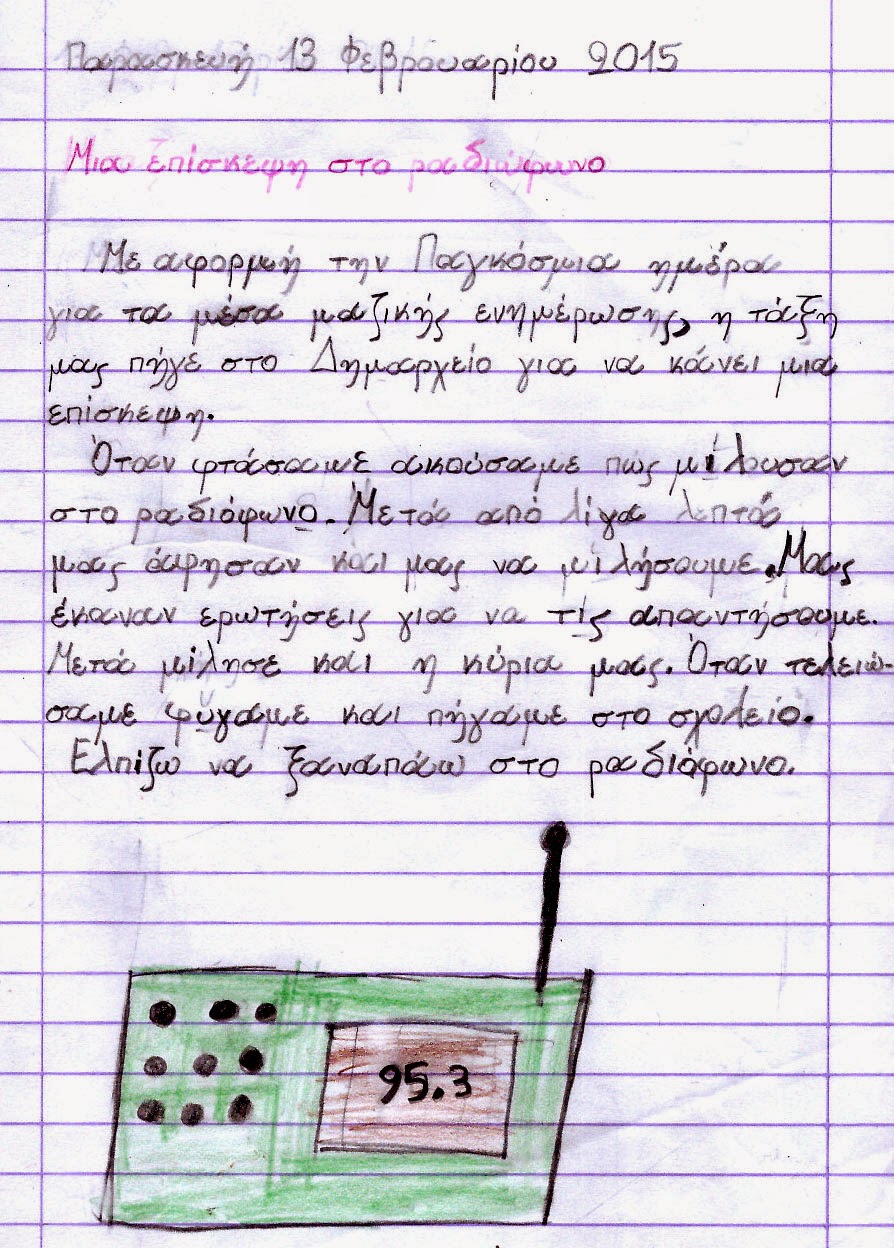 Παρασκευή 13 Φεβρουαρίου 2015
Μια επίσκεψη στο ραδιόφωνο
Με αφορμή την Παγκόσμια ημέρα
για τα μέσα μαζικής ενημέρωσης, η τάξη
μας πήγε στο Δημαρχείο για να κάνει μια
επίσκεψη.
Όταν φτάσαμε ακούσαμε πώς μιλουσαν
στο ραδιόφωνο. Μετά από λίγα λεπτά
μας άφησαν και μας να μιλήσουμε. Μας
έκαναν ερωτήσεις για να τις απαντήσουμε.
Μετά μίλησε και η κύρια μας. Όταν τελειώ-
σαμε φύγαμε και πήγαμε στο σχολείο.
Ελπίζω να ξαναπάω στο ραδιόφωνο.
95.3